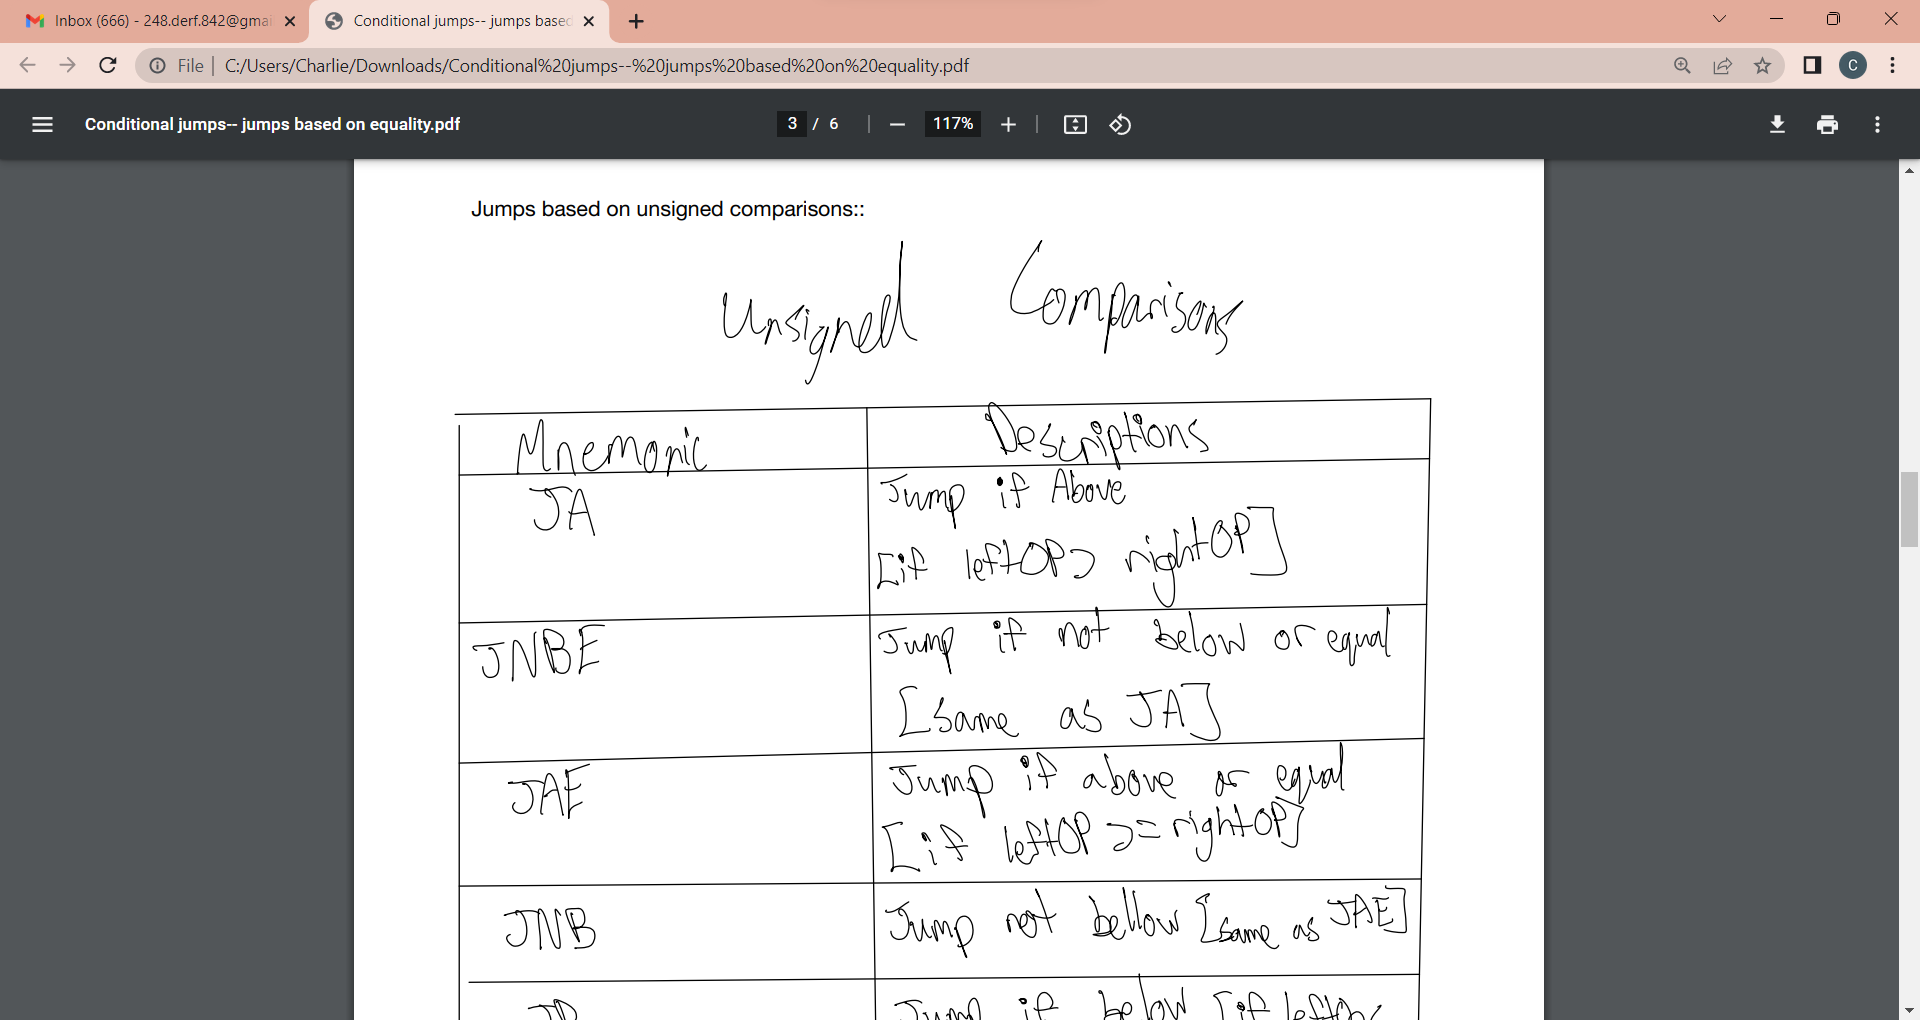 Inbox (666) - 248.derf.842@gmai
Conditional jumps-- jumps based
File
C:/Users/Charlie/Downloads/Conditional%20jumps--%20jumps%20based%20on%20equality.pdf
C
Conditional jumps-- jumps based on equality.pdf
3 / 6
117%
Jumps based on unsigned comparisons::
Unsigned Comparisons
Mnemonic
Descriptions
JA
Jump if Above
[if leftOP > rightOP]
JNBE
Jump if not below or equal
[same as JA]
JAE
Jump if above or equal
[if leftOP >= rightOP]
JNB
Jump not bellow [same as JAE]
Jump if below [if leftOp